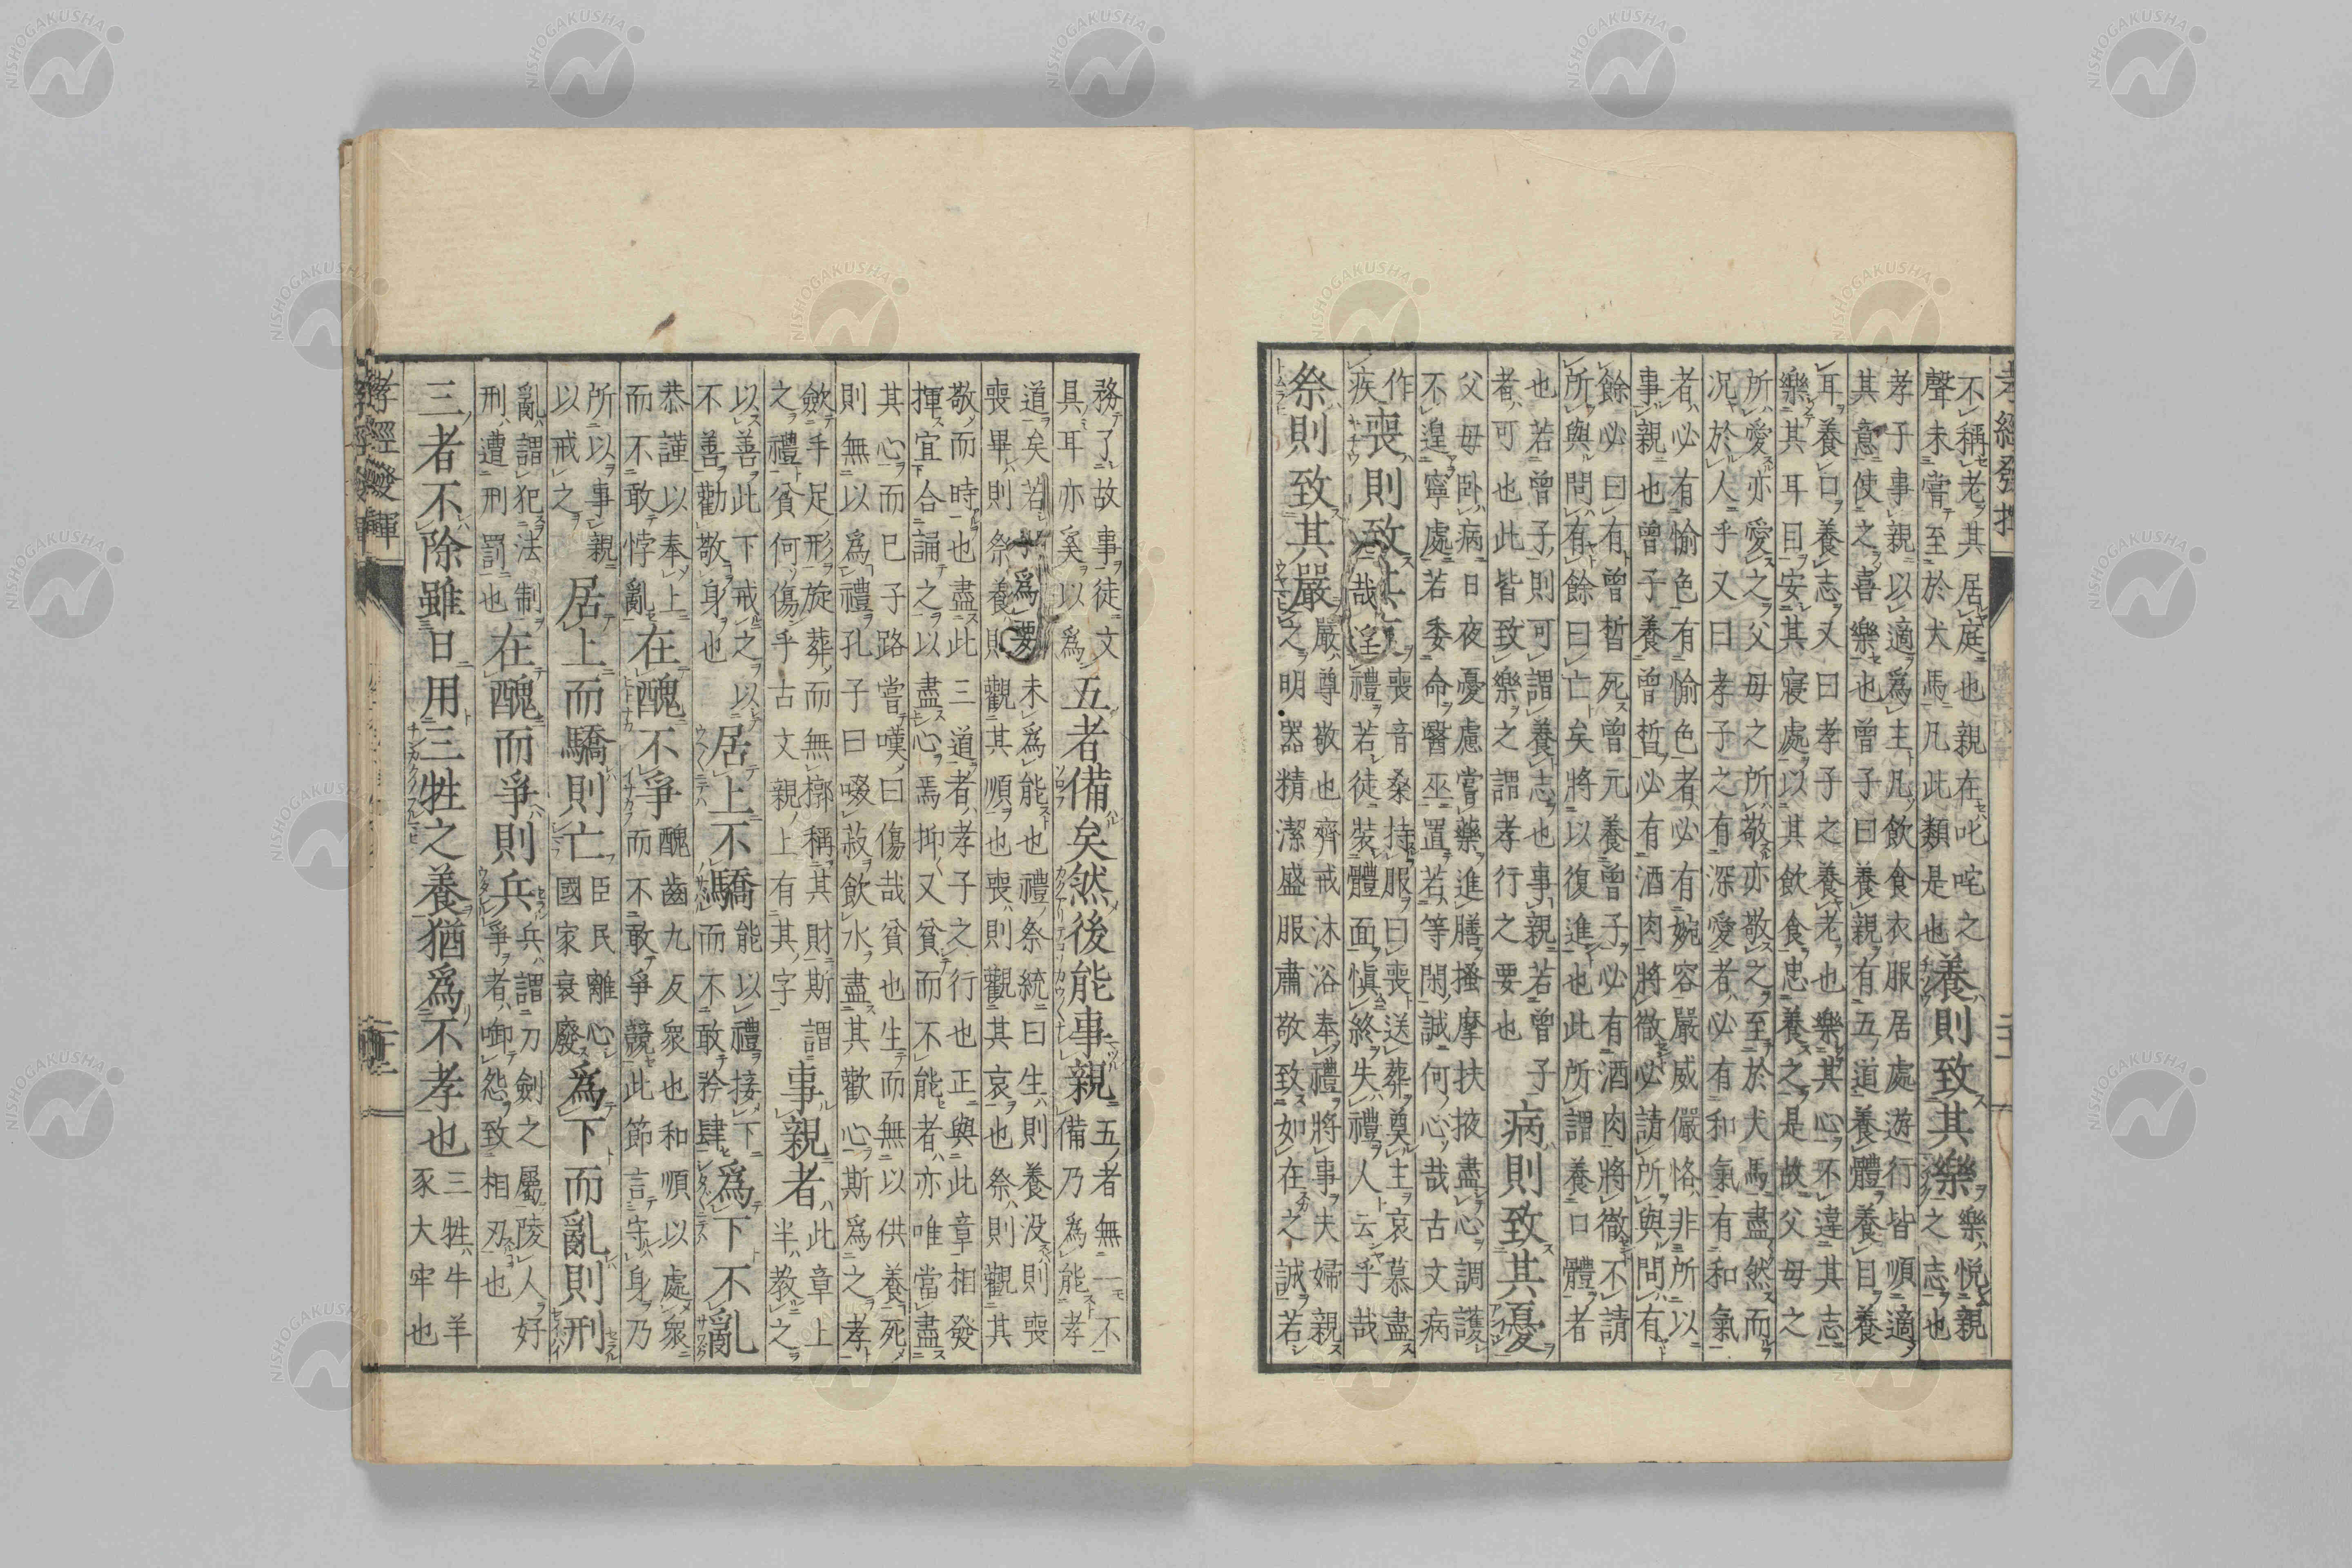 孝經發揮
二十一
不稱老其居庭也親在叱咤之
聲未嘗至於犬馬凡此類是也
養則致其樂
樂悅親
之志也
孝子事親以適爲主凡飲食衣服居處遊行皆順適
其意使之喜樂也曾子曰養親有五道養體養目養
耳養口養志又曰孝子之養老也樂其心不違其志
樂其耳目安其寢處以其飲食忠養之是故父母之
所愛亦愛之父母之所敬亦敬之至於犬馬盡然而
況於人乎又曰孝子之有深愛者必有和氣有和氣
者必有愉色有愉色者必有婉容嚴威儼恪非所以
事親也曾子養曾晳必有酒肉將徹必請所與問有
餘必曰有曾晳死曾元養曾子必有酒肉將徹不請
所與問有餘曰亡矣將以復進也此所謂養口體者
也若曾子則可謂養志也事親若曾子
者可也此皆致樂之謂孝行之要也
病則致其憂
父母臥病日夜憂慮嘗藥進膳搔摩扶掖盡心調護
不遑寧處若委命醫巫置若等閑誠何心哉古文病
作
疾
喪則致其
喪音桑持服曰喪送葬奠主哀慕盡
哉淫禮若徒裝體面愼終失禮人云乎哉
祭則致其嚴
嚴尊敬也齊戒沐浴奉禮將事夫婦親
之明器精潔盛服肅敬致如在之誠若
務了故事徒文
具耳亦奚以爲
五者備矣然後能事親
五者無一不
備乃爲能孝
道矣若爲要未爲能也禮祭統曰生則養没則喪
喪畢則祭養則觀其順也喪則觀其哀也祭則觀其
敬而時也盡此三道者孝子之行也正與此章相發
揮宜合誦之以盡心焉抑又貧而不能者亦唯當盡
其心而已子路嘗嘆曰傷哉貧也生而無以供養死
則無以爲禮孔子曰啜菽飲水盡其歡心斯爲之孝
斂手足形旋葬而無槨稱其財斯謂
之禮貧何傷乎古文親上有其字
事親者
此章上
半教之
以善此下戒之以
不善勸敬身也
居上不驕
能以禮接下
而不敢矜肆
爲下不亂
恭謹以奉上
而不敢悖亂
在醜不爭
醜齒九友衆也和順以處衆
而不敢爭競此節言守身乃
所以事親
以戒之
居上而驕則亡
臣民離心
國家衰廢
爲下而亂則刑
亂謂犯法制
刑遭刑罰也
在醜而爭則兵
兵謂刀劍之屬陵人好
爭者啣怨致相刃也
三者不除雖日用三牲之養猶爲不孝也
三牲牛羊
豕大牢也
孝經發揮